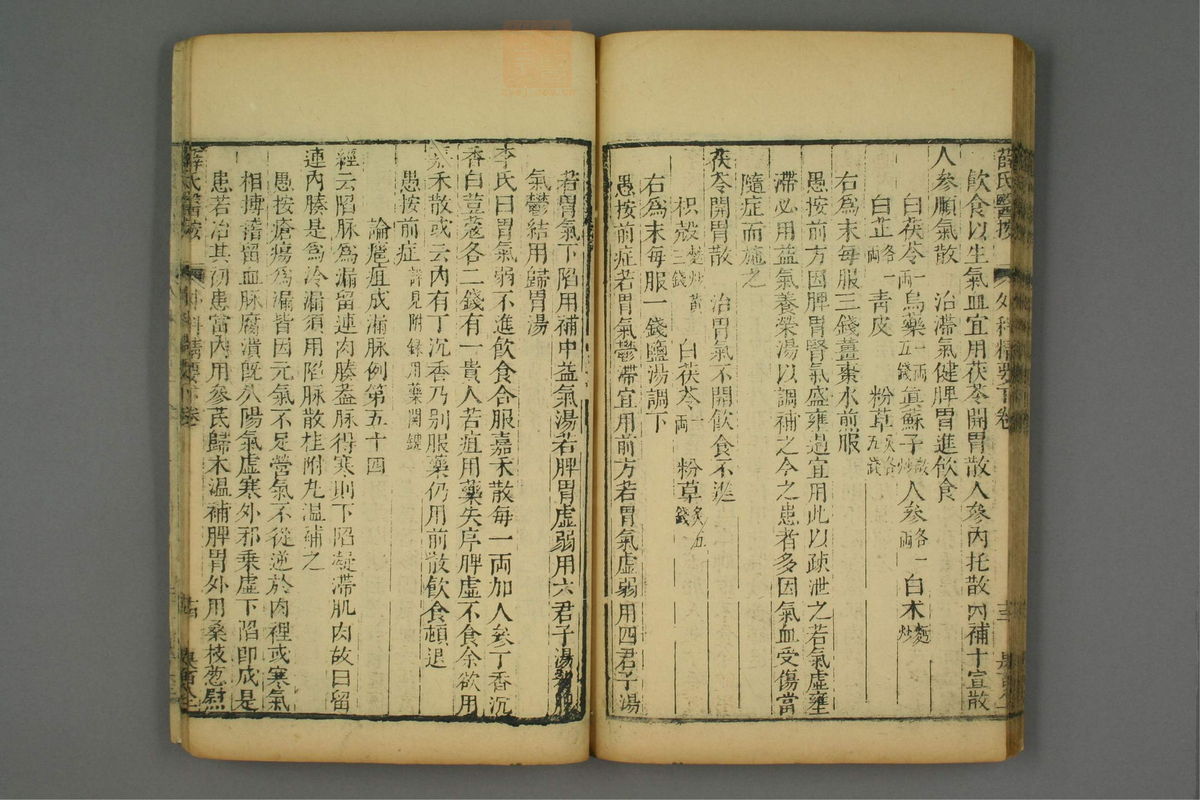 薛氏醫按 外科精要下卷
飲食以生氣血宜用茯苓開胃散人參內托散內補十宣散
人參順氣散 治滯氣健脾胃進飲食
白茯苓一兩烏藥一兩五錢眞蘇子微炒人參各一兩白朮麵炒
白芷各一兩 青皮 粉草炙各五錢
右爲末每服三錢薑棗水煎服
愚按前方因脾胃腎氣盛壅過宜用此以疎泄之若氣虛壅
滯必用益氣養榮湯以調補之今之患者多因氣血受傷當
隨症而施之
茯苓開胃散 治胃氣不開飲食不進
枳殼麩炒黃三錢 白茯苓一兩 粉草炙五錢
右爲末每服一錢鹽湯調下
愚按前症若胃氣鬱滯宜用前方若胃氣虛弱用四君子湯
若胃氣下陷用補中益氣湯若脾胃虛弱用六君子湯
氣鬱結用歸脾湯
李氏曰胃氣弱不進飲食合服嘉禾散每一兩加人參丁香沉
香白荳蔲各二錢有一貴人若疽用藥失序脾虛不食余欲用
嘉禾散或云內有丁沉香乃别服藥仍用前散飲食頓進
愚按前症詳見附錄用藥關鍵
論瘡疽成漏脉例第五十四
經云陷脉爲漏留連肉腠葢脉得寒則下陷凝滯肌肉故曰留
連內腠是爲冷漏須用陷脉散桂附丸温補之
愚按瘡瘍爲漏皆因元氣不足營氣不從逆於肉裡或寒氣
相搏稽留血脉腐潰旣久陽氣虛寒外邪乗虛下陷卽成是
患若治其初患當內用參芪歸朮温補脾胃外用桑枝葱熨
薛氏醫按 外科精要下卷